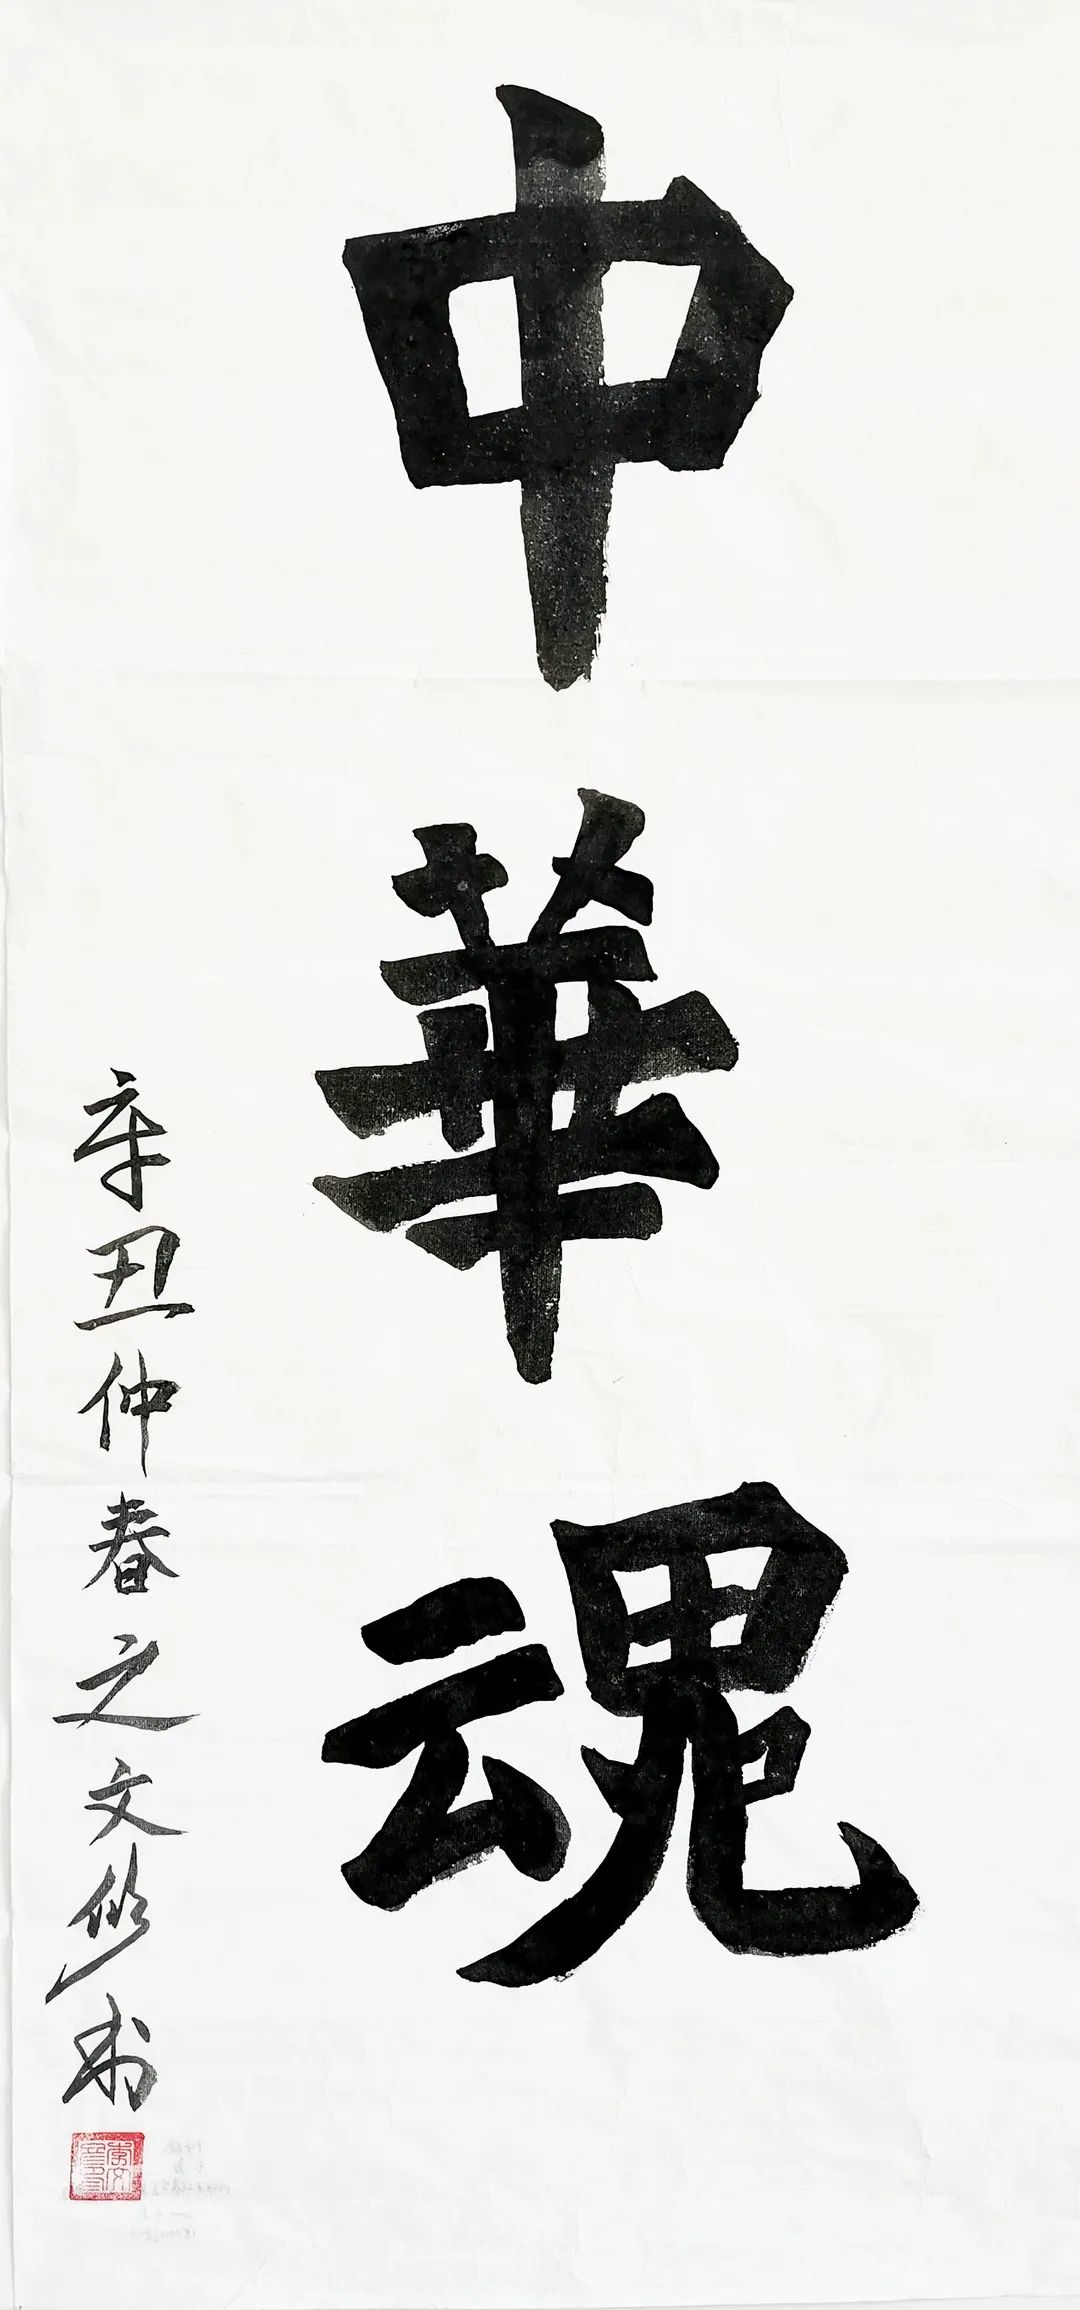 中華魂
辛丑仲春之文修书